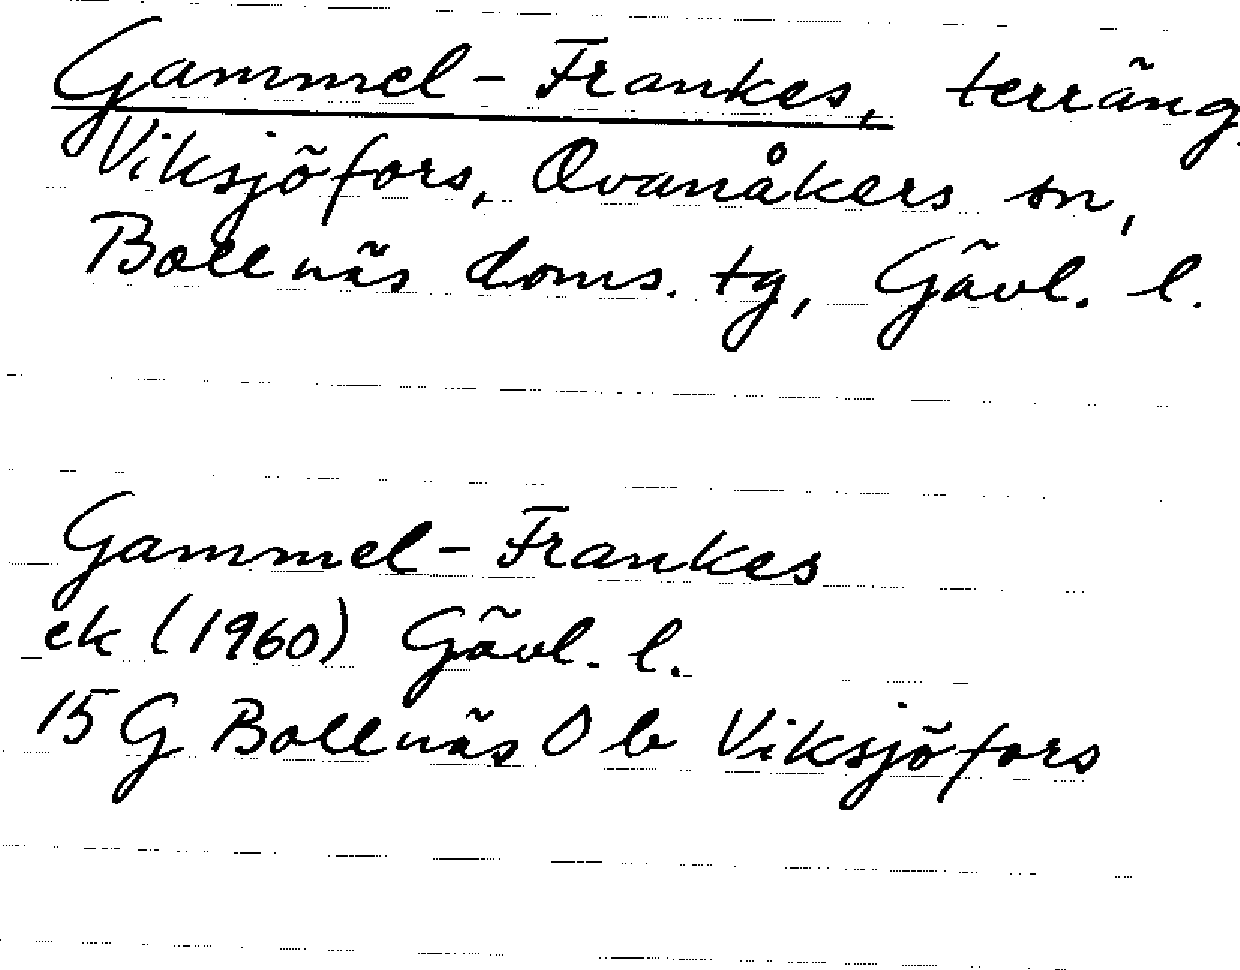 Gammel-Frankes, terräng
Viksjöfors, Ovanåkers sn,
Bollnäs doms. tg, Gävl. l.
Gammel-Frankes
ek (1960) Gävl. l.
15 G Bollnäs 0 b Viksjöfors